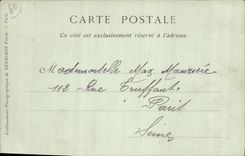 CARTE POSTALE
Ce côté est exclusivement réservé à l'adresse
Mademoiselle Max
112 Rue Truffaut
Paris
Seine
Etablissements Photographiques de NEURDEIN Frères. - Paris
60